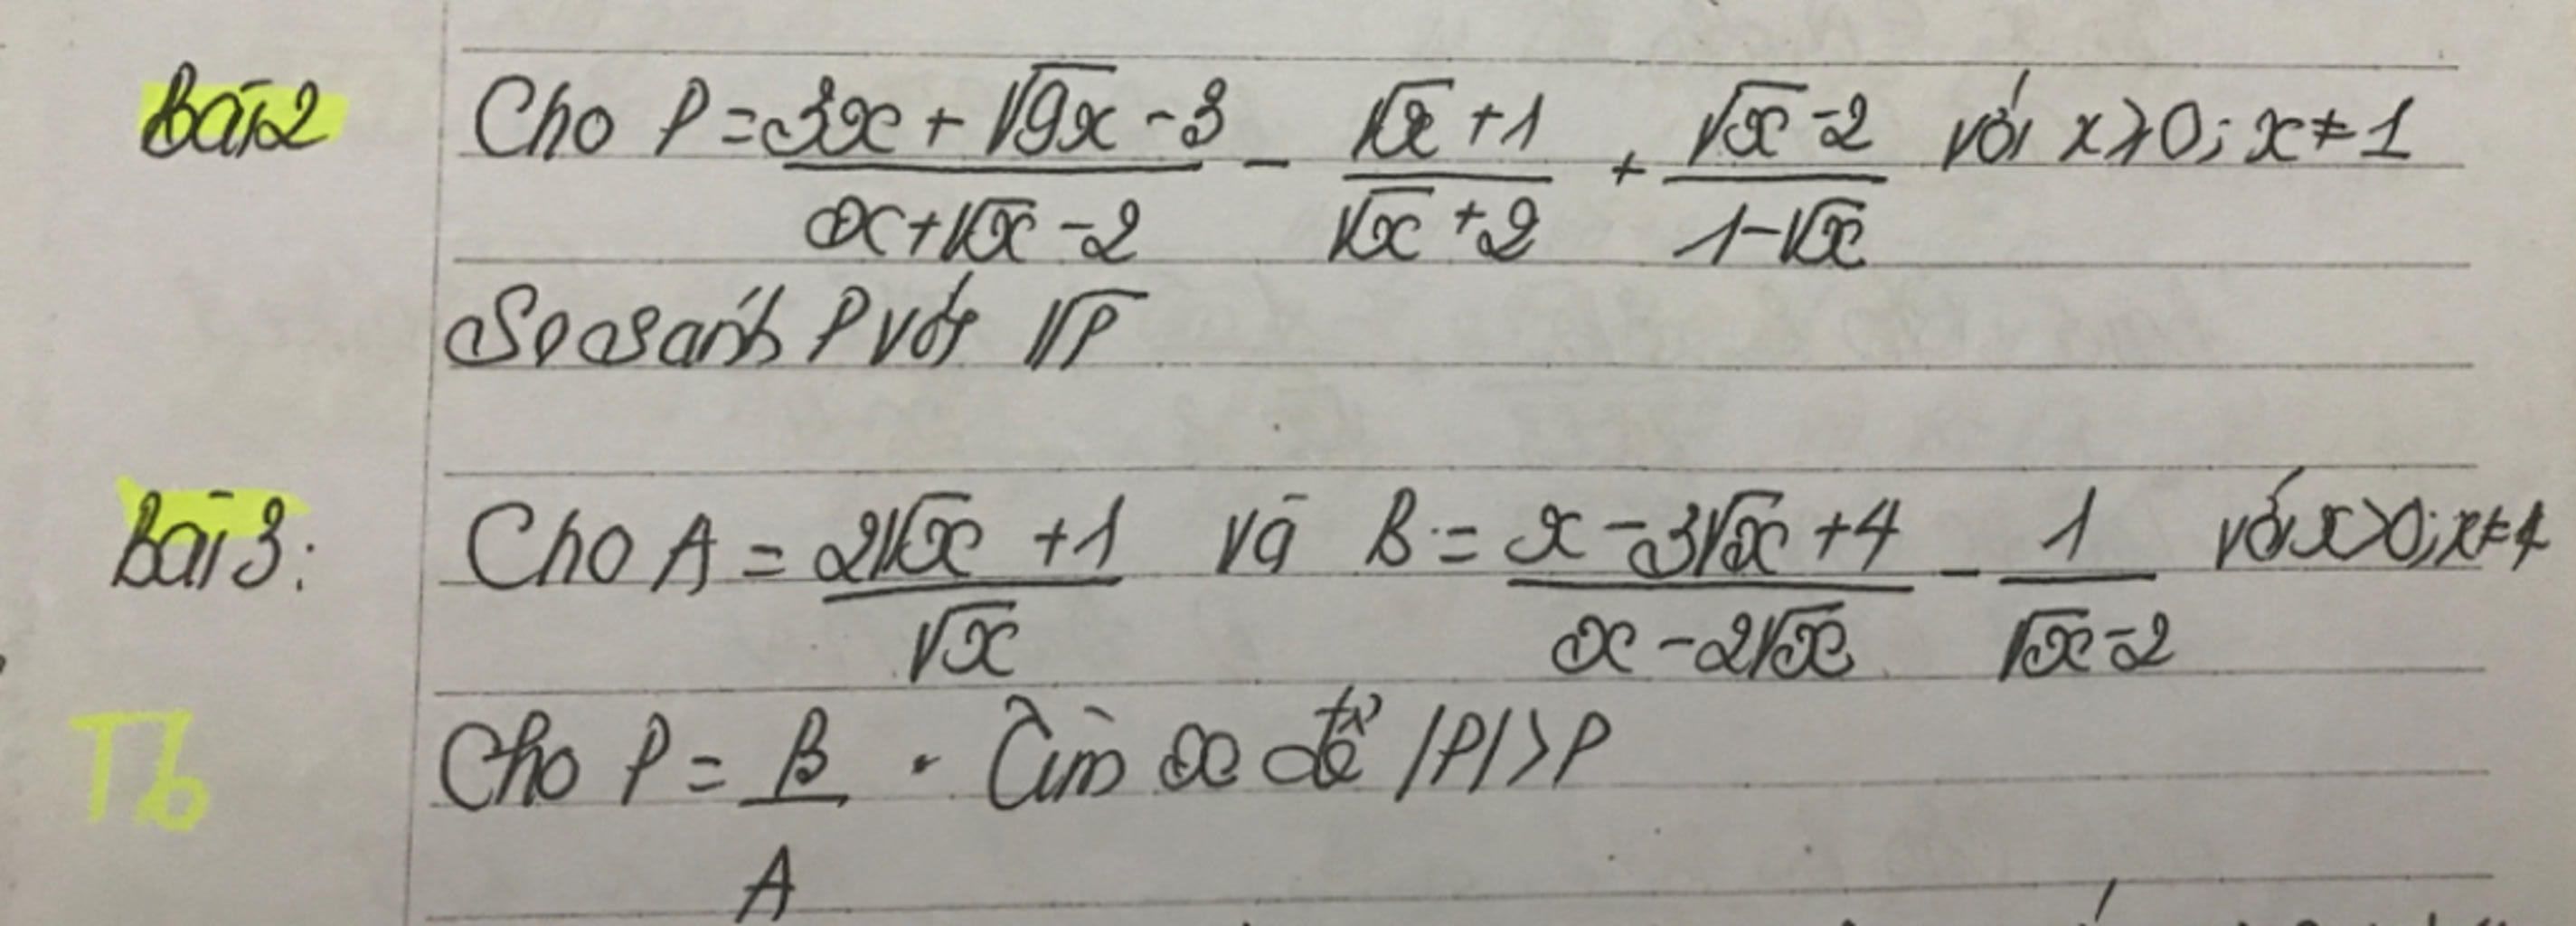 Bài 2 Cho P = (3x + √9x - 3)/(x + √x - 2) - (√x + 1)/(√x + 2) + (√x - 2)/(1 - √x) với x ⩾ 0; x ≠ 1
So sánh P với √P
Bài 3: Cho A = (2√x + 1)/√x và B = (x - 3√x + 4)/(x - 2√x) - 1/(√x - 2) với x > 0; x ≠ 4
Tb Cho P = B/A . Tìm x để |P| > P